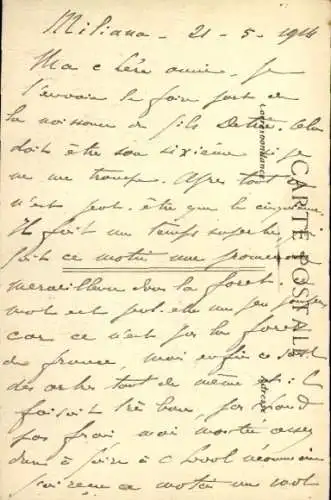 Miliana - 21 - 5 - 1914
Ma chère amie, Je
t'envoie le faire part de
la naissance du fils
doit être son sixième si je
me trompe. Après tout ce
n'est peut-être que le cinquième.
Il fait un temps superbe, j'ai
fait ce matin une promenade
merveilleuse dans la forêt.
mot est peut-être un peu
car ce n'est pas la forêt
de france, mais enfin ce sont
des arbres tout de même et il
faisait très bon, pas chaud
pas frais mais
dure à faire à cheval néanmoins
ce matin un mot
CARTE POSTALE
Correspondance
Adresse